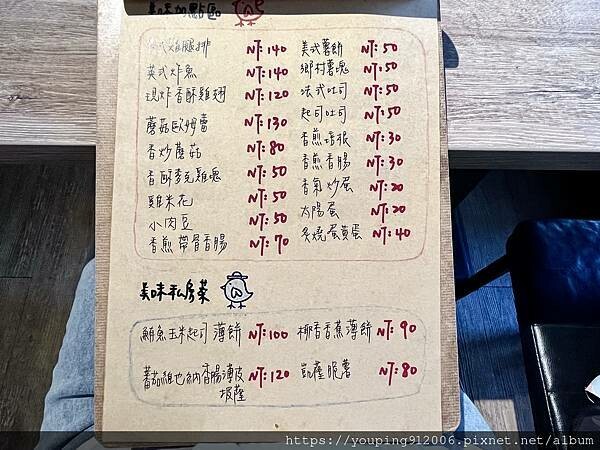 美味加點區
式雞腿排 NT:140 美式薯餅 NT:50
英式炸魚 NT:140 鄉村薯塊 NT:50
現炸香酥雞翅 NT:120 法式吐司 NT:50
蘑菇歐姆蕾 NT:130 起司吐司 NT:50
香炒蘑菇 NT:80 香煎培根 NT:30
香酥麥克雞塊 NT:50 香煎香腸 NT:30
雞米花 NT:50 香氣炒蛋 NT:20
小肉豆 NT:50 太陽蛋 NT:20
香煎帶骨香腸 NT:70 炙燒蛋黃蛋 NT:40
美味私房菜
鮪魚玉米起司薄餅 NT:100 椰香香蕉薄餅 NT:90
蕃茄維也納香腸薄皮披薩 NT:120 凱薩脆薯 NT:80
https://youping912006.pixnet.net/album